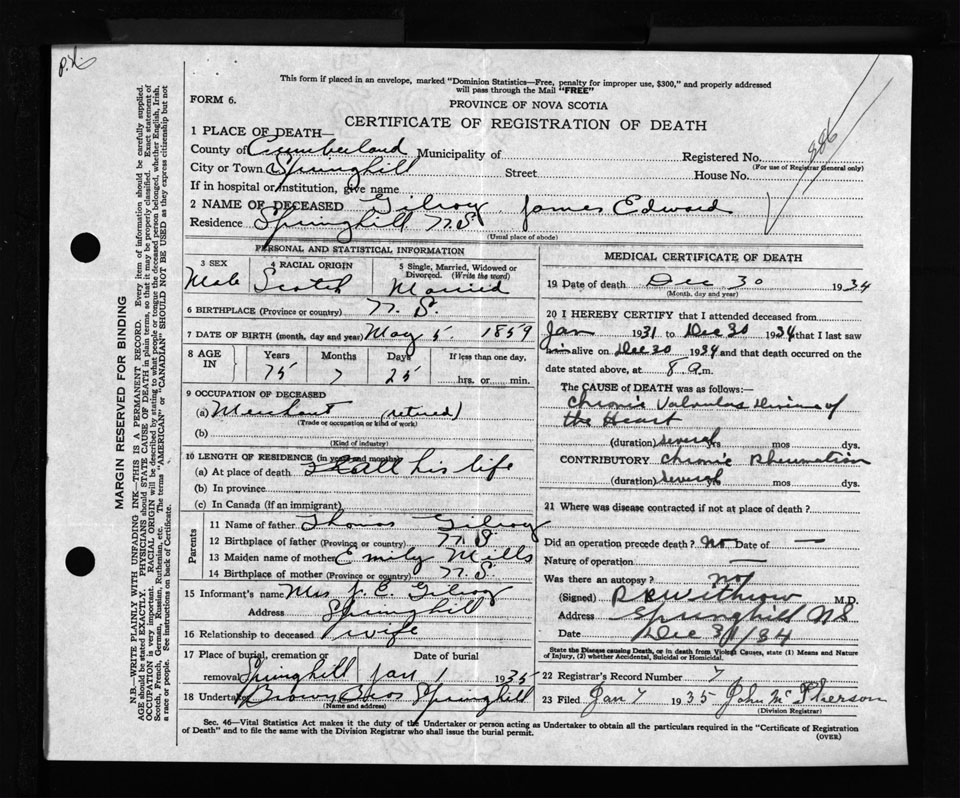 P.X.
This form if placed in an envelope, marked "Dominion Statistics—Free, penalty for improper use, $300," and properly addressed
will pass through the Mail "FREE"
FORM 6.
PROVINCE OF NOVA SCOTIA
CERTIFICATE OF REGISTRATION OF DEATH
886
1 PLACE OF DEATH—
County of Cumberland Municipality of Registered No.
(For use of Registrar General only)
City or Town Springhill Street House No.
If in hospital or institution, give name
2 NAME OF DECEASED Gilroy James Edward
Residence Springhill N.S
(Usual place of abode)
PERSONAL AND STATISTICAL INFORMATION
3 SEX 4 RACIAL ORIGIN 5 Single, Married, Widowed or Divorced. (Write the word)
Male Scotch Married
6 BIRTHPLACE (Province or country) N. S.
7 DATE OF BIRTH (month, day and year) May 5. 1859
8 AGE IN Years Months Days If less than one day
75 7 25 hrs. or min.
9 OCCUPATION OF DECEASED
(a) Merchant (retired)
(Trade or occupation or kind of work)
(b)
(Kind of industry)
10 LENGTH OF RESIDENCE (in years and months)
(a) At place of death all his life
(b) In province
(c) In Canada (if immigrant)
Parents
11 Name of father Thomas Gilroy
12 Birthplace of father (Province or country) N. S
13 Maiden name of mother Emily Mills
14 Birthplace of mother (Province or country) N. S.
15 Informant's name Mrs J. E. Gilroy
Address Springhill
16 Relationship to deceased wife
17 Place of burial, cremation or removal Springhill Date of burial Jan 1 1935
18 Undertaker Brown Bros Springhill
(Name and address)
MEDICAL CERTIFICATE OF DEATH
19 Date of death Dec 30 1934
(Month, day and year)
20 I HEREBY CERTIFY that I attended deceased from
Jan 1931 to Dec 30 1934 that I last saw
him alive on Dec 30 1934 and that death occurred on
date stated above, at 8 a.m.
The CAUSE of DEATH was as follows:—
Chronic Valvular Disease of
the Heart
(duration) several yrs mos dys.
CONTRIBUTORY Chronic Rheumatism
(duration) several yrs mos dys.
21 Where was disease contracted if not at place of death?
Did an operation precede death? No Date of —
Nature of operation —
Was there an autopsy? not
(Signed) Withrow M.D.
Address Springhill NS
Date Dec 31/34
State the Disease causing Death, or in death from Violent Causes, state (1) Means and
Nature of Injury, (2) whether Accidental, Suicidal or Homicidal.
22 Registrar's Record Number 7
23 Filed Jan 7 1935 John McPherson
(Division Registrar)
Sec. 46—Vital Statistics Act makes it the duty of the Undertaker or person acting as Undertaker to obtain all the particulars required in the "Certificate of Registration
of Death" and to file the same with the Division Registrar who shall issue the burial permit.
(OVER)
MARGIN RESERVED FOR BINDING
N.B.—WRITE PLAINLY WITH UNFADING INK—THIS IS A PERMANENT RECORD. Every item of information should be carefully supplied.
AGE should be stated EXACTLY. PHYSICIANS should STATE CAUSE OF DEATH in plain terms, so that it may be properly classified. Exact statement of
OCCUPATION is very important. RACIAL ORIGIN will be described by stating to what people or tongue the deceased person belonged, whether English, Irish,
Scotch, French, German, Russian, Ruthenian, etc. The terms "AMERICAN" or "CANADIAN" SHOULD NOT BE USED as they express citizenship but not
a race or people. See instructions on back of Certificate.